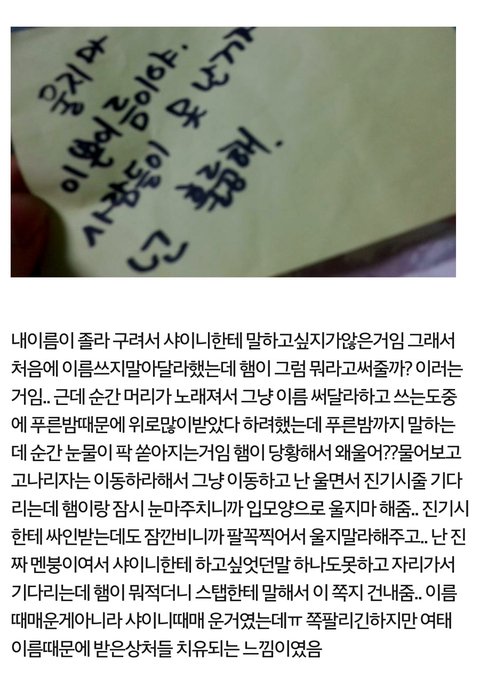 울지마
이쁜이름이야.
사람들이 못난거
넌 훌륭해.
내이름이 졸라 구려서 샤이니한테 말하고싶지가않은거임 그래서
처음에 이름쓰지말아달라했는데 햄이 그럼 뭐라고써줄까? 이러는
거임.. 근데 순간 머리가 노래져서 그냥 이름 써달라하고 쓰는도중
에 푸른밤때문에 위로많이받았다 하려했는데 푸른밤까지 말하는
데 순간 눈물이 팍 쏟아지는거임 햄이 당황해서 왜울어??물어보고
고나리자는 이동하라해서 그냥 이동하고 난 울면서 진기시줄 기다
리는데 햄이랑 잠시 눈마주치니까 입모양으로 울지마 해줌.. 진기시
한테 싸인받는데도 잠깐비니까 팔꼭찍어서 울지말라해주고.. 난 진
짜 멘붕이여서 샤이니한테 하고싶엇던말 하나도못하고 자리가서
기다리는데 햄이 뭐적더니 스탭한테 말해서 이 쪽지 건내줌.. 이름
때매운게아니라 샤이니때매 운거였는데ㅠ 쪽팔리긴하지만 여태
이름때문에 받은상처들 치유되는 느낌이였음